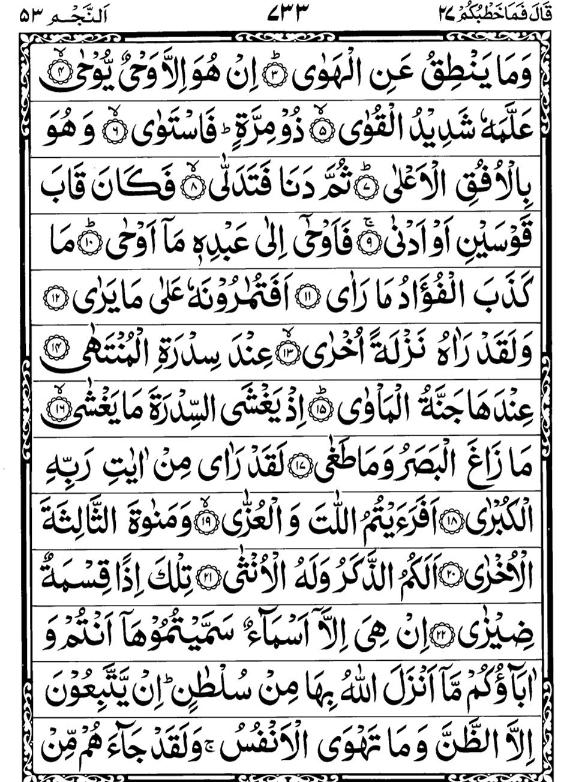 قَالَ فَمَا خَطْبُكُمْ ٢٧ ٧٣٣ اَلنَّجْم ٥٣
وَمَا يَنْطِقُ عَنِ الْهَوٰىؕ‏ ﴿۳﴾ اِنْ هُوَ اِلَّا وَحْىٌ يُّوْحٰىۙ‏ ﴿۴﴾
عَلَّمَهٗ شَدِيْدُ الْقُوٰىۙ‏ ﴿۵﴾ ذُوْ مِرَّةٍؕ فَاسْتَوٰىۙ‏ ﴿۶﴾ وَهُوَ
بِالْاُفُقِ الْاَعْلٰىؕ‏ ﴿۷﴾ ثُمَّ دَنَا فَتَدَلّٰىۙ‏ ﴿۸﴾ فَكَانَ قَابَ
قَوْسَيْنِ اَوْ اَدْنٰىۚ‏ ﴿۹﴾ فَاَوْحٰۤى اِلٰى عَبْدِهٖ مَاۤ اَوْحٰىؕ‏ ﴿۱۰﴾ مَا
كَذَبَ الْفُؤَادُ مَا رَاٰى‏ ﴿۱۱﴾ اَفَتُمٰرُوْنَهٗ عَلٰى مَا يَرٰى‏ ﴿۱۲﴾
وَلَقَدْ رَاٰهُ نَزْلَةً اُخْرٰىۙ‏ ﴿۱۳﴾ عِنْدَ سِدْرَةِ الْمُنْتَهٰى‏ ﴿۱۴﴾
عِنْدَهَا جَنَّةُ الْمَاْوٰىؕ‏ ﴿۱۵﴾ اِذْ يَغْشَى السِّدْرَةَ مَا يَغْشٰىۙ‏ ﴿۱۶﴾
مَا زَاغَ الْبَصَرُ وَمَا طَغٰى‏ ﴿۱۷﴾ لَقَدْ رَاٰى مِنْ اٰيٰتِ رَبِّهِ
الْكُبْرٰى‏ ﴿۱۸﴾ اَفَرَءَيْتُمُ اللّٰتَ وَالْعُزّٰىۙ‏ ﴿۱۹﴾ وَمَنٰوةَ الثَّالِثَةَ
الْاُخْرٰى‏ ﴿۲۰﴾ اَلَكُمُ الذَّكَرُ وَلَهُ الْاُنْثٰى‏ ﴿۲۱﴾ تِلْكَ اِذًا قِسْمَةٌ
ضِيْزٰى‏ ﴿۲۲﴾ اِنْ هِىَ اِلَّاۤ اَسْمَآءٌ سَمَّيْتُمُوْهَاۤ اَنْتُمْ وَ
اٰبَآؤُكُمْ مَّاۤ اَنْزَلَ اللّٰهُ بِهَا مِنْ سُلْطٰنٍؕ اِنْ يَّتَّبِعُوْنَ
اِلَّا الظَّنَّ وَمَا تَهْوَى الْاَنْفُسُۚ وَلَقَدْ جَآءَهُمْ مِّنْ